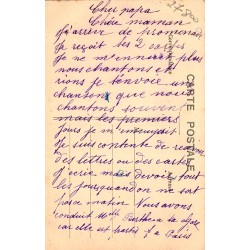 Cher papa
Chère maman
J'arrive de promenade
Je reçoit les 2 cartes
Je ne m'ennuie plus
nous chantons et
rions je t'envoie une
chanson que nous
chantons souvent
mais les premiers
jours je m'ennuyait
Je suis contente de recevoir
des lettres ou des cartes
j'écrie mes devoir tout
les jours quandon ne sort
pas matin Nous avons
conduit Melle Berthe a la gare
car elle est partie a Paris
CARTE POSTALE
Correspondance